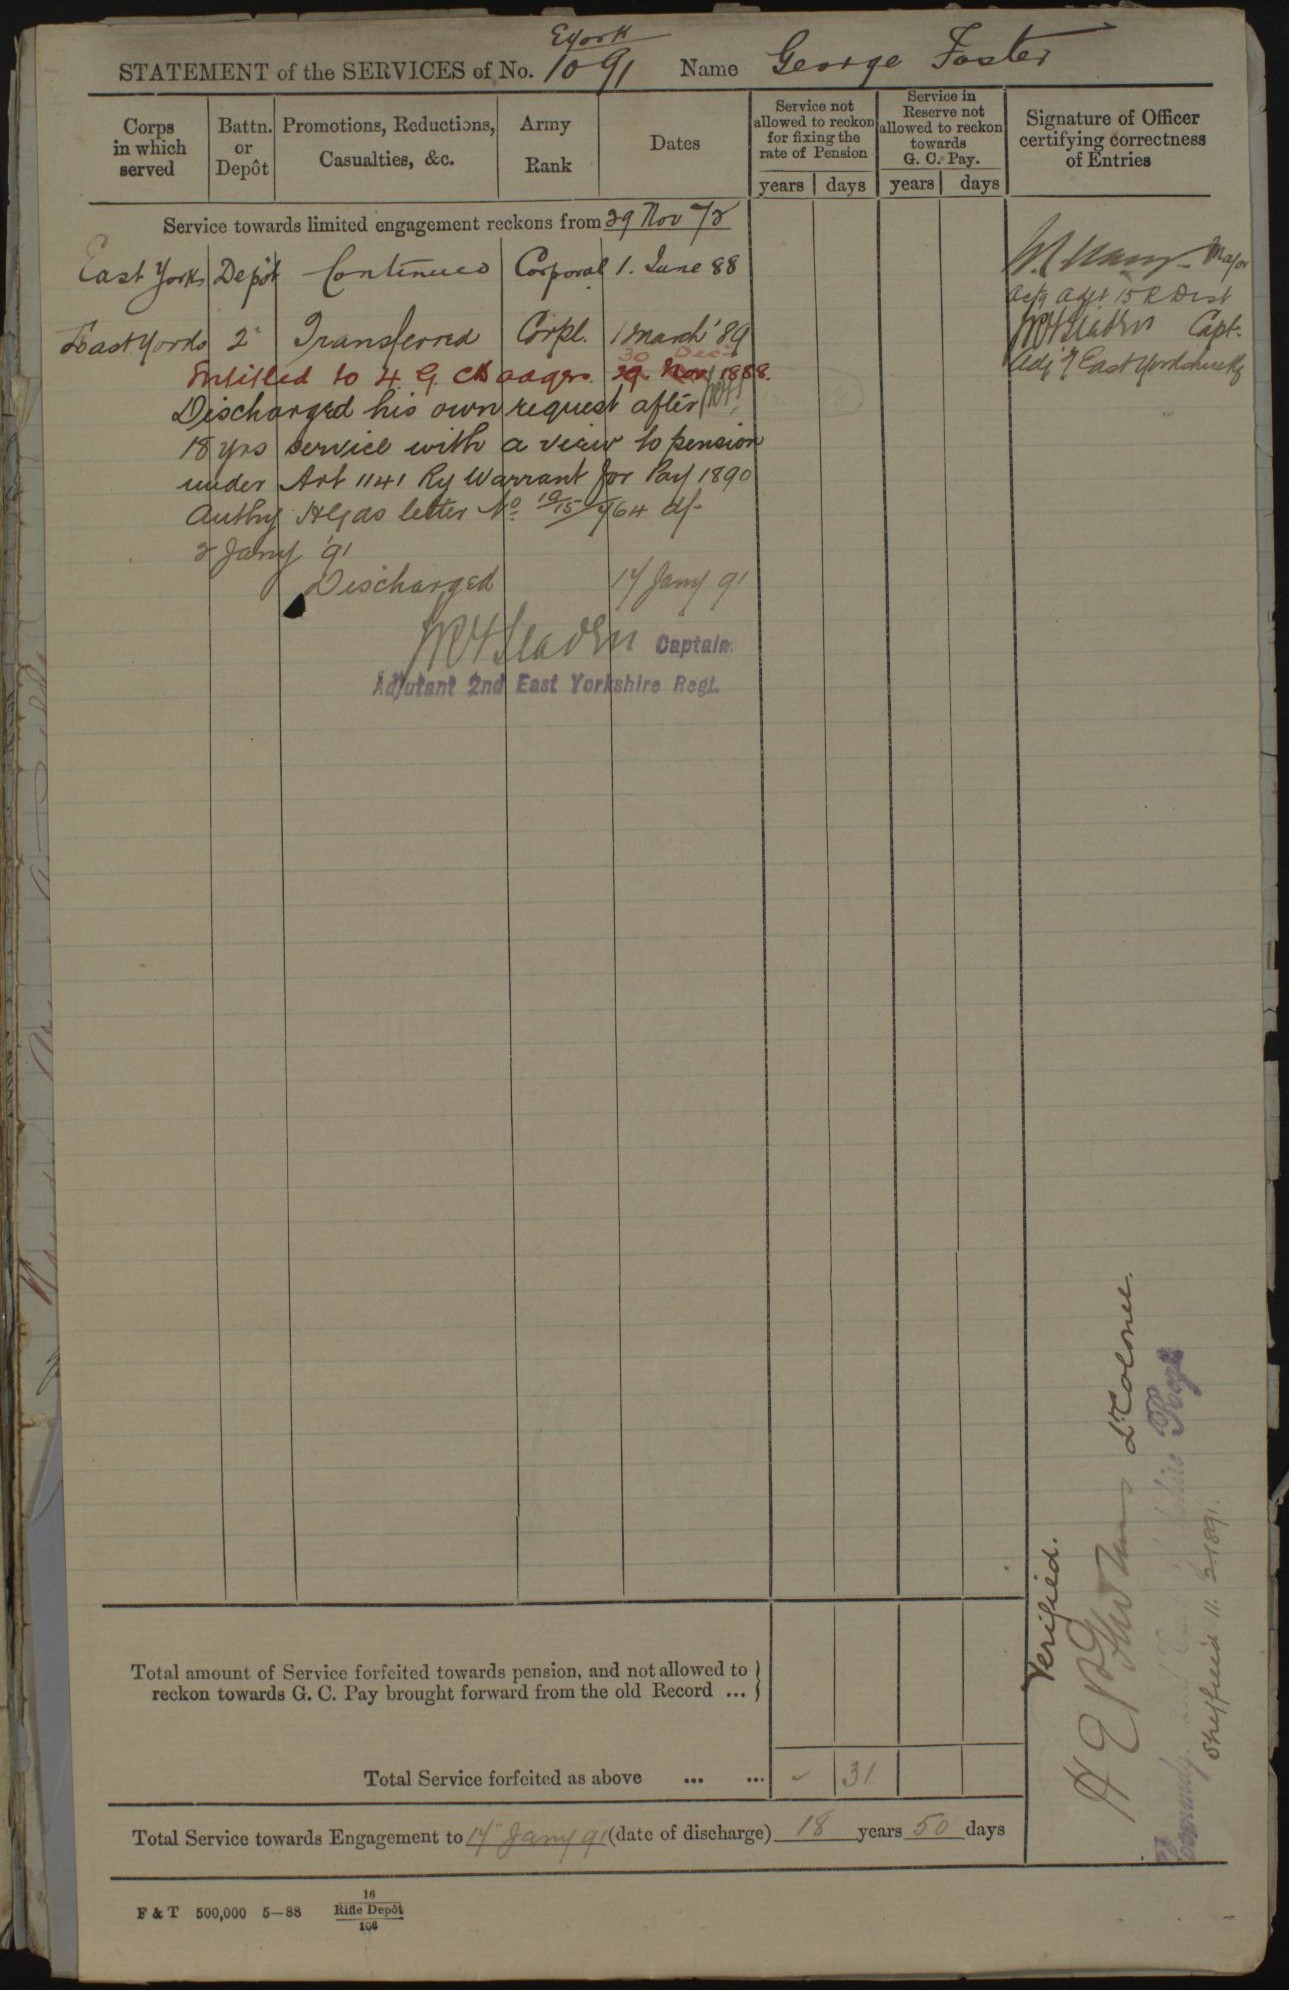 E York
STATEMENT of the SERVICES of No. 1091 Name George Foster
Corps in which served
Battn. or Depôt
Promotions, Reductions, Casualties, &c.
Army Rank
Dates
Service not allowed to reckon for fixing the rate of Pension
years days
Service in Reserve not allowed to reckon towards G. C. Pay.
years days
Signature of Officer certifying correctness of Entries
Service towards limited engagement reckons from 29 Nov 72
East Yorks Depôt Continued Corporal 1. June 88
Major
actg adjt 15 R Dist
East Yorks 2 Transferred Corpl. 1 March '89
WH Sladen Capt.
Adj
30 Dec
Entitled to 4 G. C. Badges. 29 Nov 1888.
Discharged his own request after
18 yrs service with a view to pension
under Art 1141 Ry Warrant for Pay 1890
Authy Hd Qrs letter No. 19/15/964 d/-
2 Jany '91
Discharged 17 Jany 91
Sladen Captain
Adjutant 2nd East Yorkshire Regt.
Total amount of Service forfeited towards pension, and not allowed to
reckon towards G. C. Pay brought forward from the old Record ...
Total Service forfeited as above ... ... 31
Total Service towards Engagement to 17" Jany 91 (date of discharge) 18 years 50 days
F & T 500,000 5—88 16 Rifle Depôt 106
Verified.
Lt Colonel.
Commandg. 2nd East Yorkshire Regt
Sheffield 11. 2 1891.